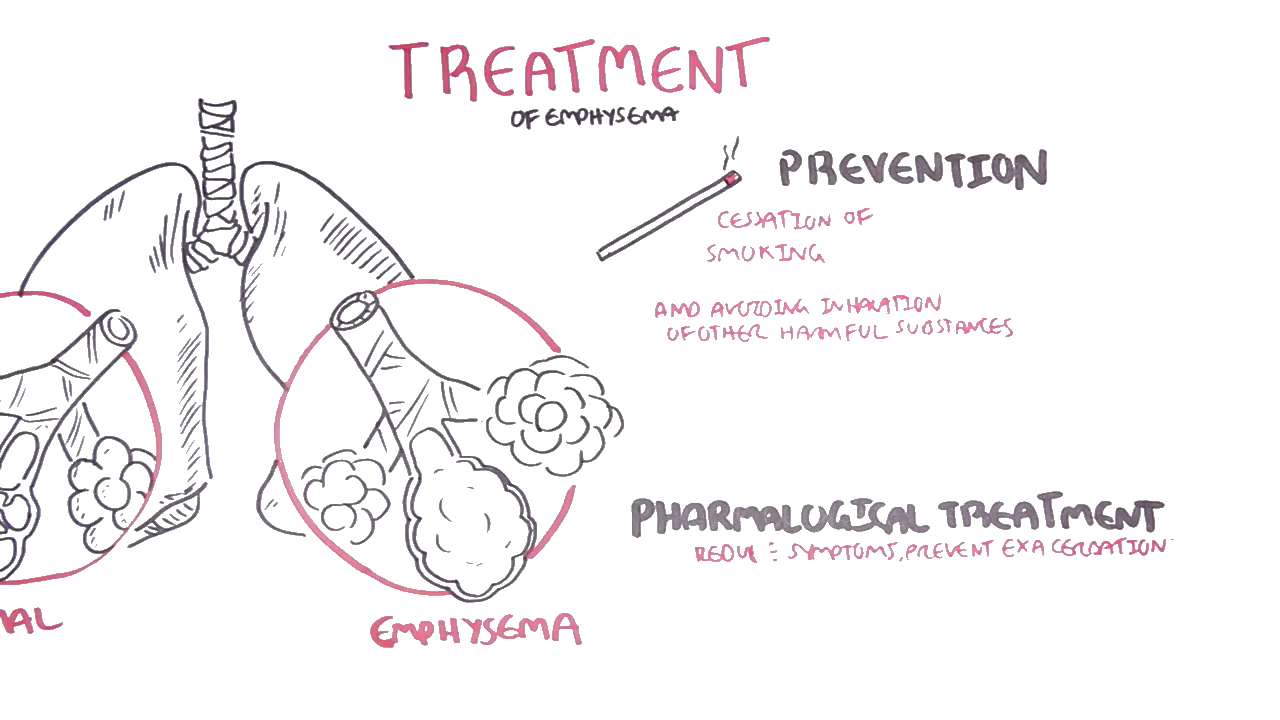 TREATMENT
OF EMPHYSEMA
PREVENTION
CESSATION OF
SMOKING
AND AVOIDING INHALATION
OF OTHER HARMFUL SUBSTANCES
PHARMALOGICAL TREATMENT
SYMPTOMS, PREVENT EXACERBATION
NAL
EMPHYSEMA